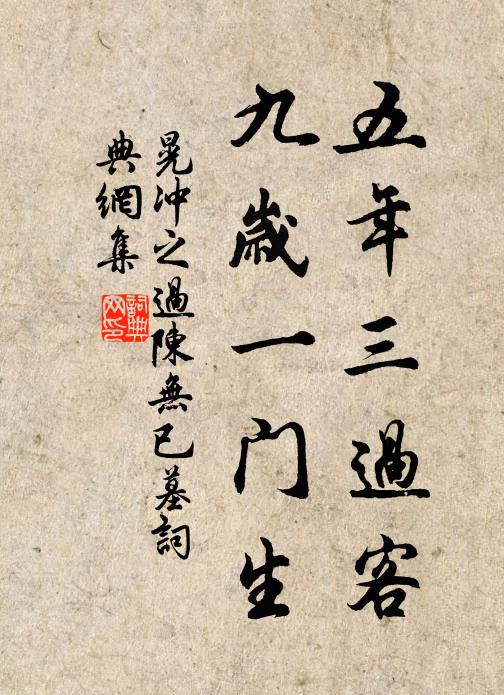 五年三過客
九歲一門生
晁沖之過陳無已墓詞
典網集
詞典
网印